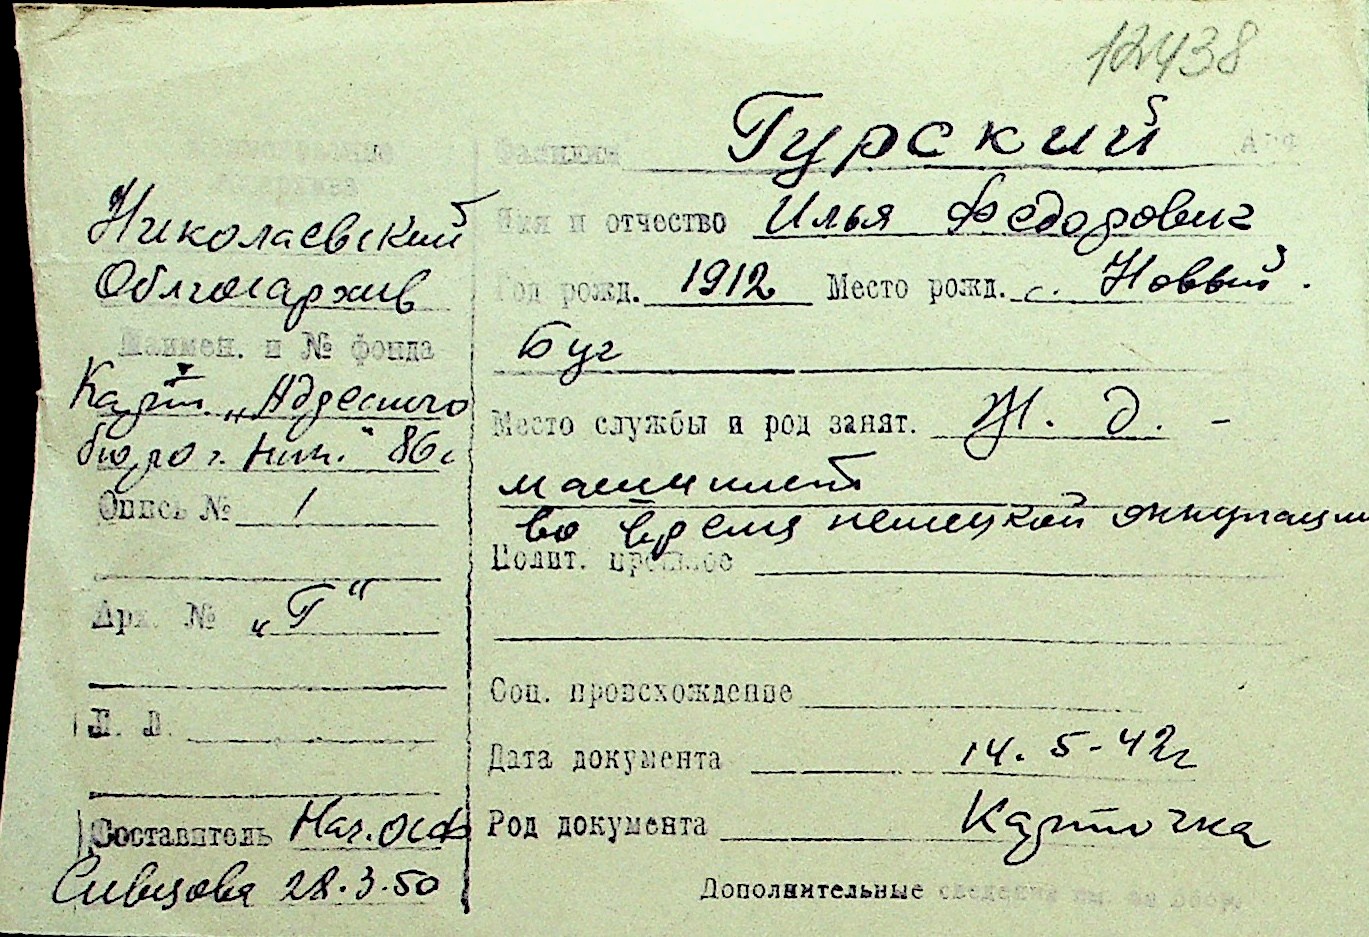 12438
Наименование
Фамилия Гурский
архива
Николаевский
Имя и отчество Илья Федорович
Облгосархив
Год рожд. 1912 Место рожд. с. Новый
Наимен. и № фонда
Буг
Карт. „Адресного
Место службы и род занят. Ж. д. -
бюро г. Ник." 86с
машинист
Опись № 1
во время немецкой оккупации
Полит. прошлое
Арх. № „Г"
Соц. происхождение
Л. Л.
Дата документа 14. 5-42г
Составитель Нач. осф
Род документа Карточка
28.3.50
Дополнительные сведения на обор.